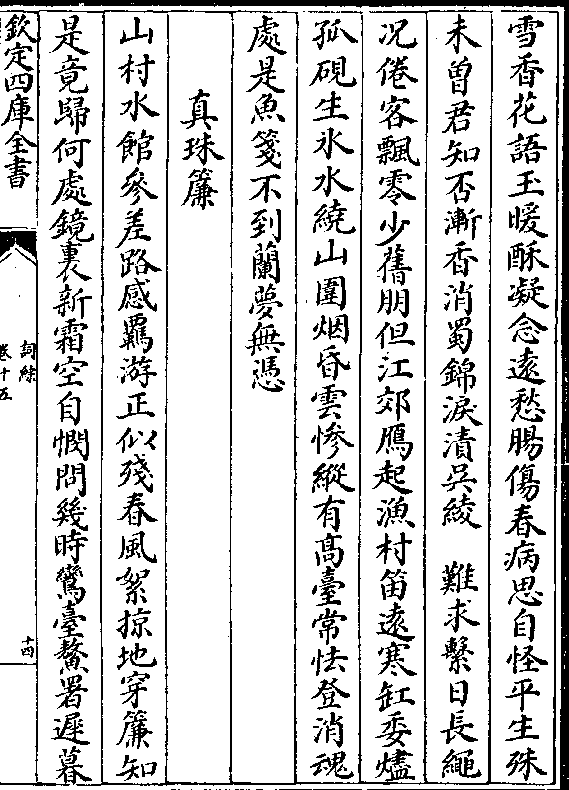 雪香花語玉暖酥凝念遠愁腸傷春病思自怪平生殊
未曽君知否漸香消蜀錦淚漬吳綾　難求繫日長繩
况倦客飄零少舊朋但江郊鴈起漁村笛遠寒缸委燼
孤硯生氷水繞山圍烟昏雲慘縱有髙臺常怯登消魂
處是魚箋不到蘭夢無憑
真珠簾
山村水館參差路感羈游正似殘春風絮掠地穿簾知
是竟歸何處鏡裏新霜空自憫問幾時鸞臺鼇署遲暮
欽定四庫全書
詞綜
卷十五
十四